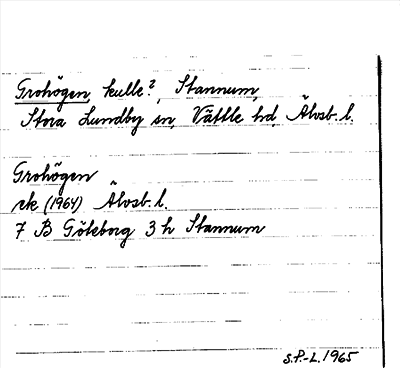 Grohögen, kulle?, Stannum,
Stora Lundby sn, Vättle hd, Älvsb. l.
Grohögen
ek (1964) Älvsb. l.
7 B Göteborg 3 h Stannum
S.P.-L. 1965